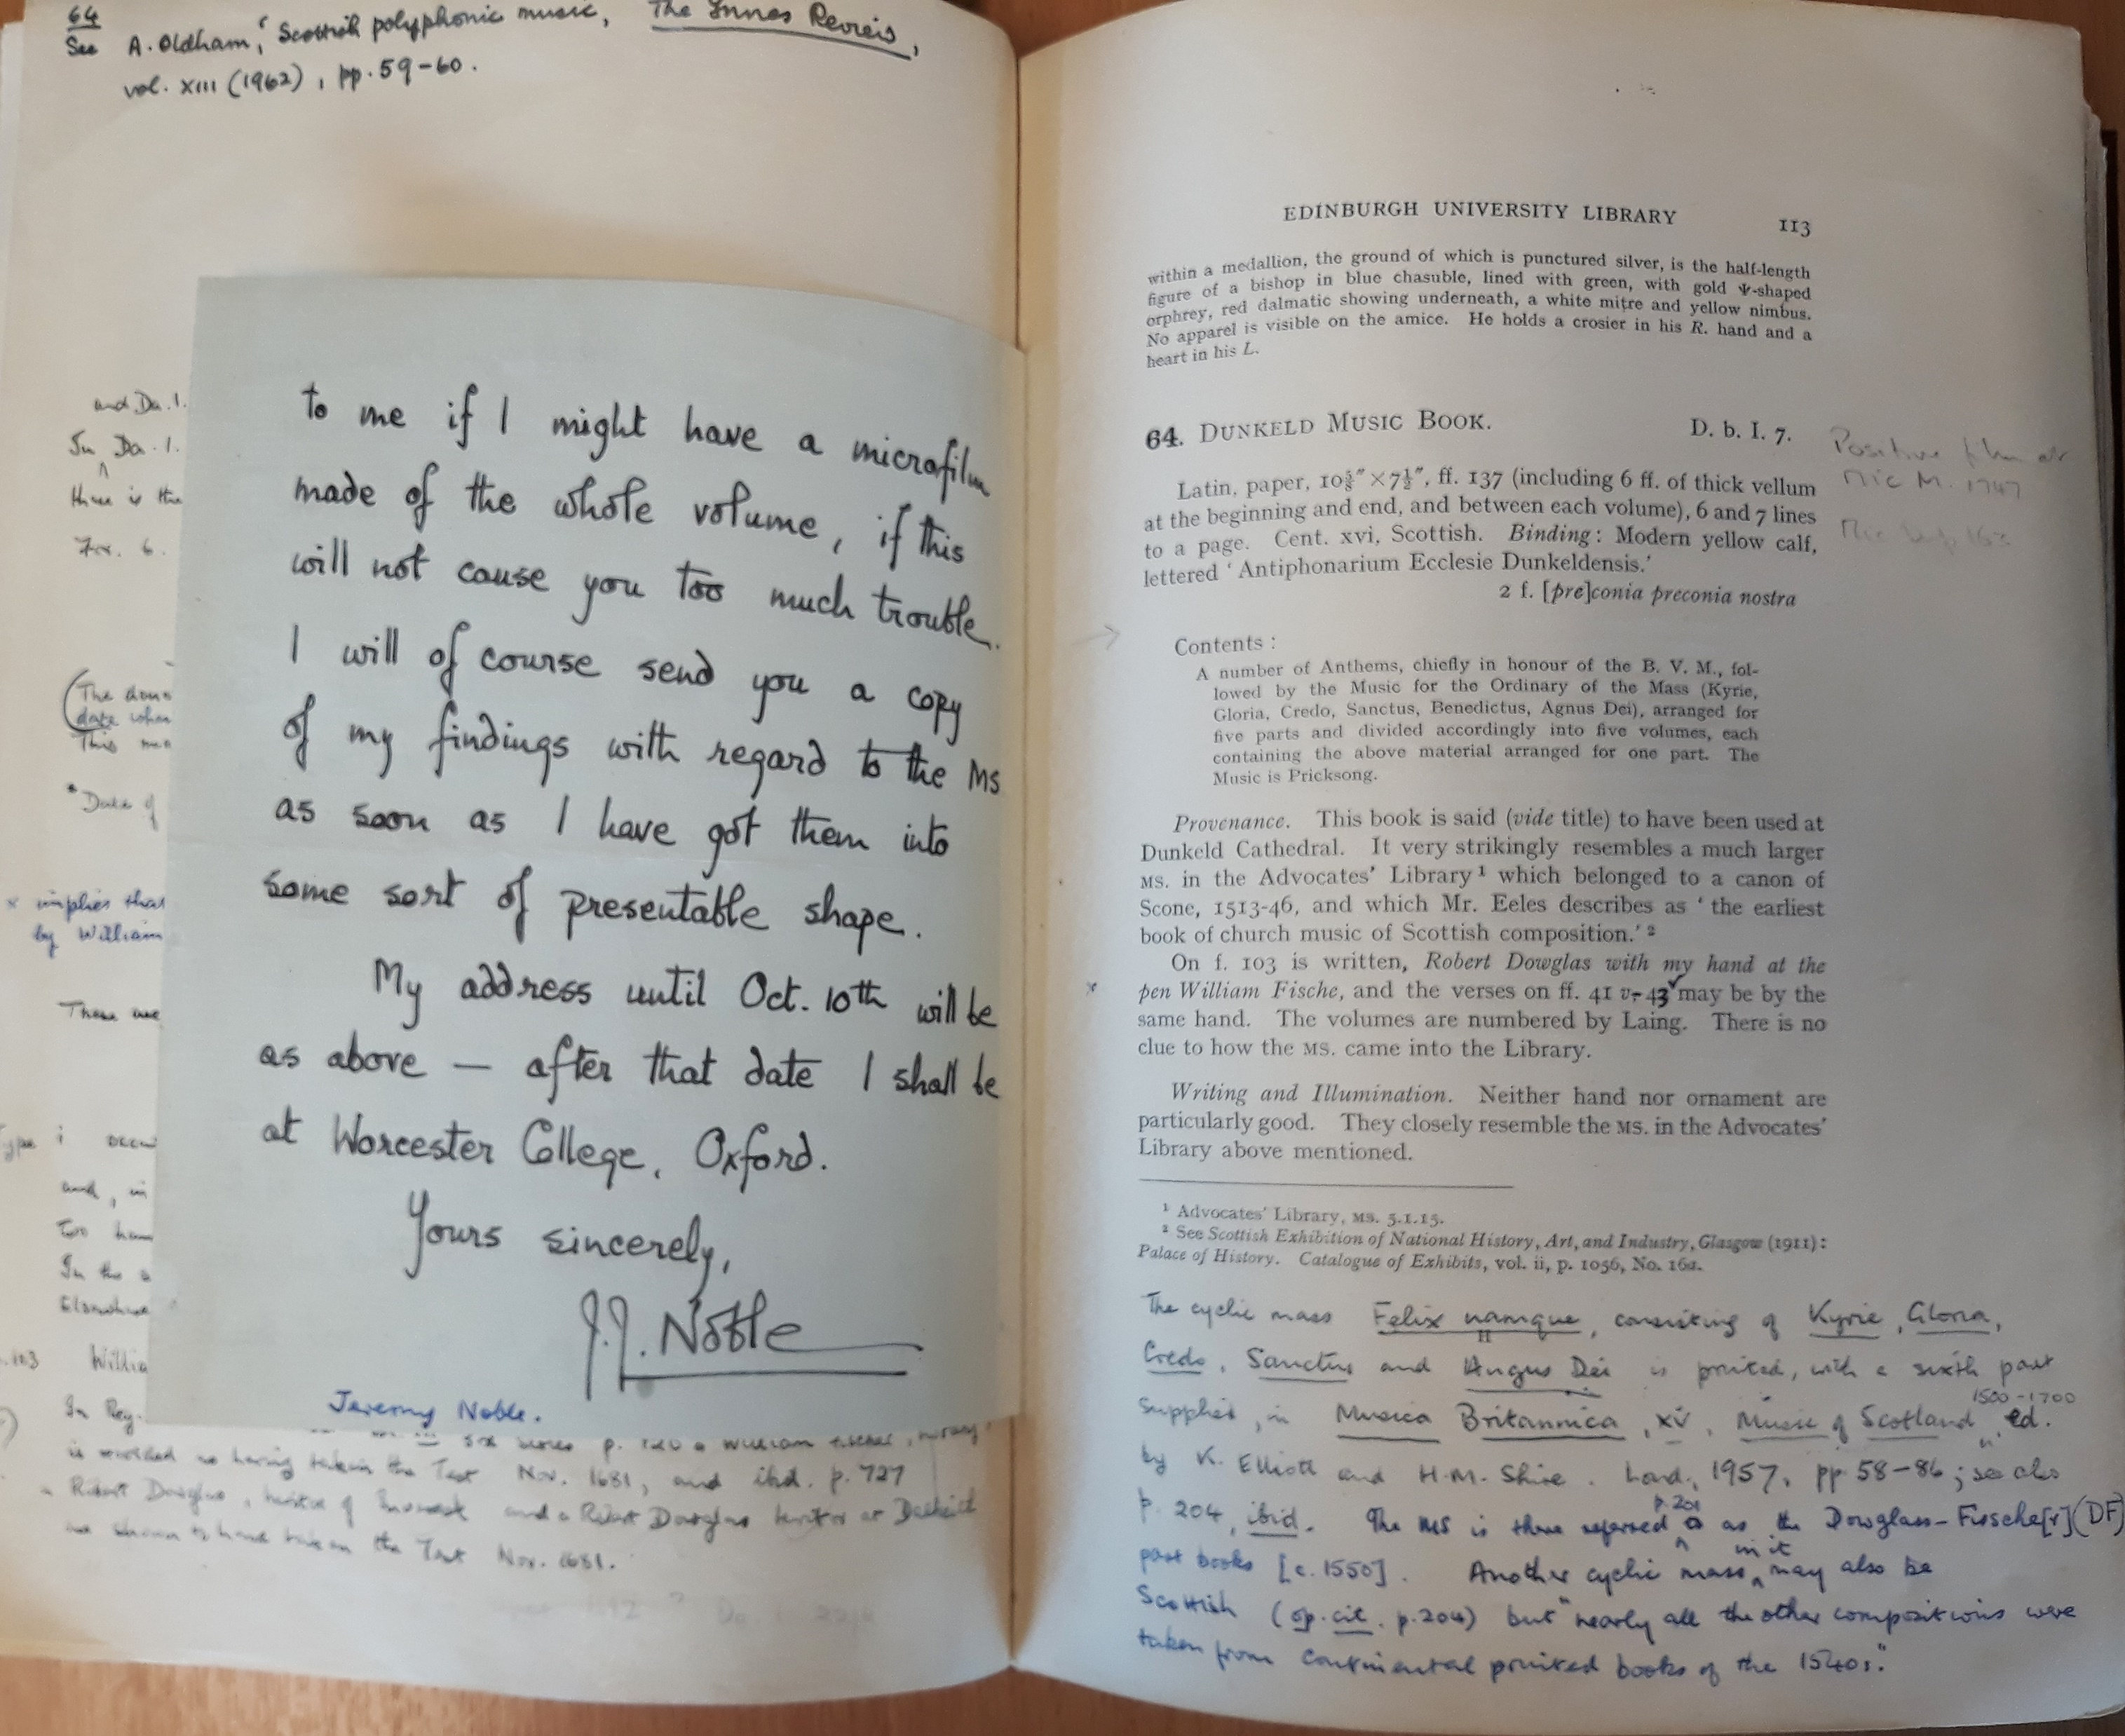 64
See A. Oldham, 'Scottish polyphonic music, The Innes Review,
vol. XIII (1962), pp. 59-60.
and Da. 1.
In Da. 1.
there is the
For. 6.
(The
date when
This
*Date of
x implies that
by William
These are
Type i
and, in
too
In the
Elsewhere
Willia
In Reg.
to me if I might have a microfilm
made of the whole volume, if this
will not cause you too much trouble.
I will of course send you a copy
of my findings with regard to the MS
as soon as I have got them into
some sort of presentable shape.
My address until Oct. 10th will be
as above — after that date I shall be
at Worcester College, Oxford.
Yours sincerely,
J.J. Noble
Jeremy Noble.
p. 120 a William Fischer,
is recorded as having taken the Test Nov. 1681, and ibid. p. 727
a Robert Douglas, heritor of and a Robert Douglas heritor at
are shown to have taken the Test Nov. 1681.
EDINBURGH UNIVERSITY LIBRARY 113
within a medallion, the ground of which is punctured silver, is the half-length
figure of a bishop in blue chasuble, lined with green, with gold Ψ-shaped
orphrey, red dalmatic showing underneath, a white mitre and yellow nimbus.
No apparel is visible on the amice. He holds a crosier in his R. hand and a
heart in his L.
64. DUNKELD MUSIC BOOK. D. b. I. 7.
Positive film at
Mic M. 1747
Latin, paper, 10⅝″ × 7½″, ff. 137 (including 6 ff. of thick vellum
at the beginning and end, and between each volume), 6 and 7 lines
to a page. Cent. xvi, Scottish. Binding: Modern yellow calf,
lettered ‘Antiphonarium Ecclesie Dunkeldensis.’
2 f. [pre]conia preconia nostra
Contents :
A number of Anthems, chiefly in honour of the B. V. M., fol-
lowed by the Music for the Ordinary of the Mass (Kyrie,
Gloria, Credo, Sanctus, Benedictus, Agnus Dei), arranged for
five parts and divided accordingly into five volumes, each
containing the above material arranged for one part. The
Music is Pricksong.
Provenance. This book is said (vide title) to have been used at
Dunkeld Cathedral. It very strikingly resembles a much larger
MS. in the Advocates’ Library ¹ which belonged to a canon of
Scone, 1513-46, and which Mr. Eeles describes as ‘the earliest
book of church music of Scottish composition.’ ²
On f. 103 is written, Robert Dowglas with my hand at the
x pen William Fische, and the verses on ff. 41 v-43 v may be by the
same hand. The volumes are numbered by Laing. There is no
clue to how the MS. came into the Library.
Writing and Illumination. Neither hand nor ornament are
particularly good. They closely resemble the MS. in the Advocates’
Library above mentioned.
¹ Advocates’ Library, MS. 5.1.15.
² See Scottish Exhibition of National History, Art, and Industry, Glasgow (1911):
Palace of History. Catalogue of Exhibits, vol. ii, p. 1056, No. 16a.
The cyclic mass Felix namque, consisting of Kyrie, Gloria,
Credo, Sanctus and Angus Dei is printed, with a sixth part
supplied, in Musica Britannica, XV, Music of Scotland 1500-1700, ed.
by K. Elliott and H.M. Shire. Lond., 1957, pp 58-86; see also
p. 204, ibid. The MS is there referred to p. 201 as the Dowglass-Fissche[r] (DF)
part books [c. 1550]. Another cyclic mass in it may also be
Scottish (op. cit. p. 204) but "nearly all the other compositions were
taken from continental printed books of the 1540s."